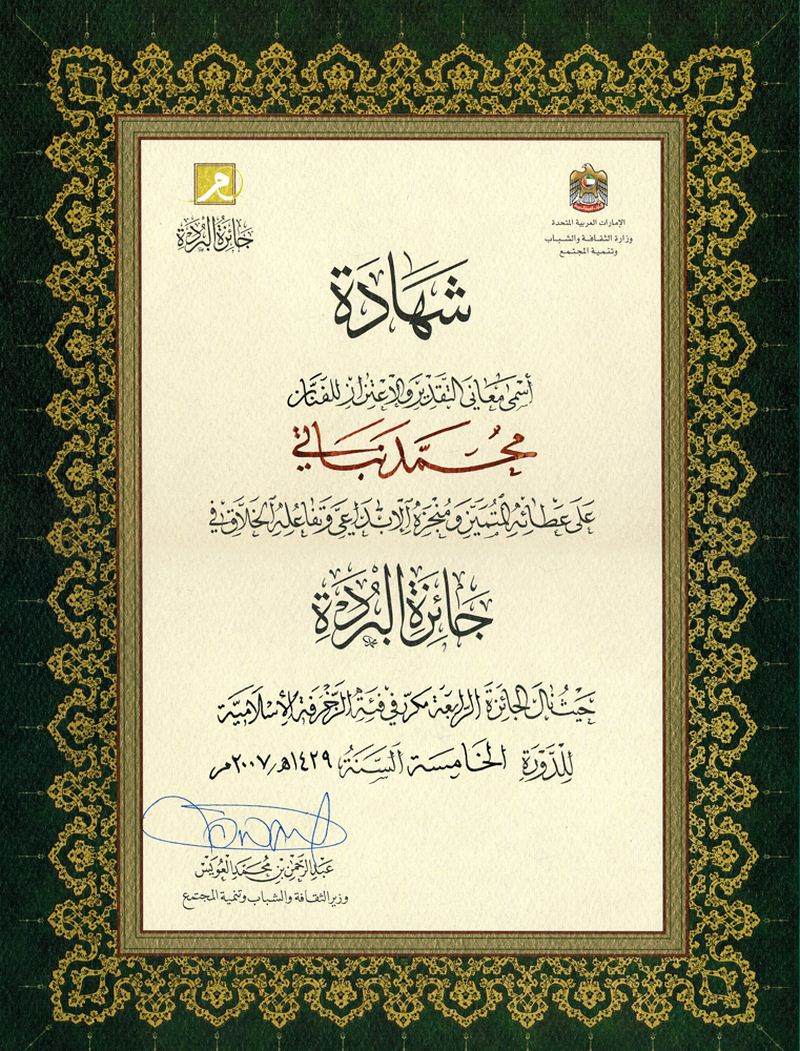 جائزة البردة
الإمارات العربية المتحدة
وزارة الثقافة والشباب
وتنمية المجتمع
شَهَادَة
أسمى معاني التقدير والاعتزاز للفنان
محمد نباتي
على عطائه المتميز ومنجزه الابداعي وتفاعله الخلاق في
جَائِزَة البُرْدَة
حيث نال الجائزة الرابعة مكرر في فئة الزخرفة الإسلامية
للدورة الخامسة السنة ١٤٢٩هـ / ٢٠٠٧م
عبدالرحمن بن محمد العويس
وزير الثقافة والشباب وتنمية المجتمع